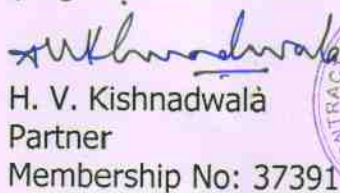 H. V. Kishnadwala
Partner
Membership No: 37391